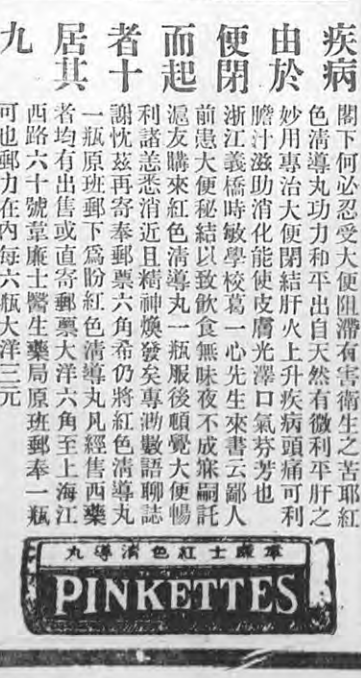 疾病
由於
便閉
而起
者十
居其
九
閣下何必忍受大便阻滯有害衛生之苦耶紅
色淸導丸功力和平出自天然有微利平肝之
妙用專治大便閉結肝火上升疾病頭痛可利
膽汁滋助消化能使皮膚光澤口氣芬芳也
浙江義橋時敏學校葛一心先生來書云鄙人
前患大便秘結以致飲食無味夜不成寐嗣託
滬友購來紅色淸導丸一瓶服後頓覺大便暢
利諸恙悉消近且精神煥發矣專泐數語聊誌
謝忱茲再寄奉郵票六角希仍將紅色淸導丸
一瓶原班郵下爲盼紅色淸導丸凡經售西藥
者均有出售或直寄郵票大洋六角至上海江
西路六十號韋廉士醫生藥局原班郵奉一瓶
可也郵力在內每六瓶大洋三元
韋廉士紅色淸導丸
PINKETTES